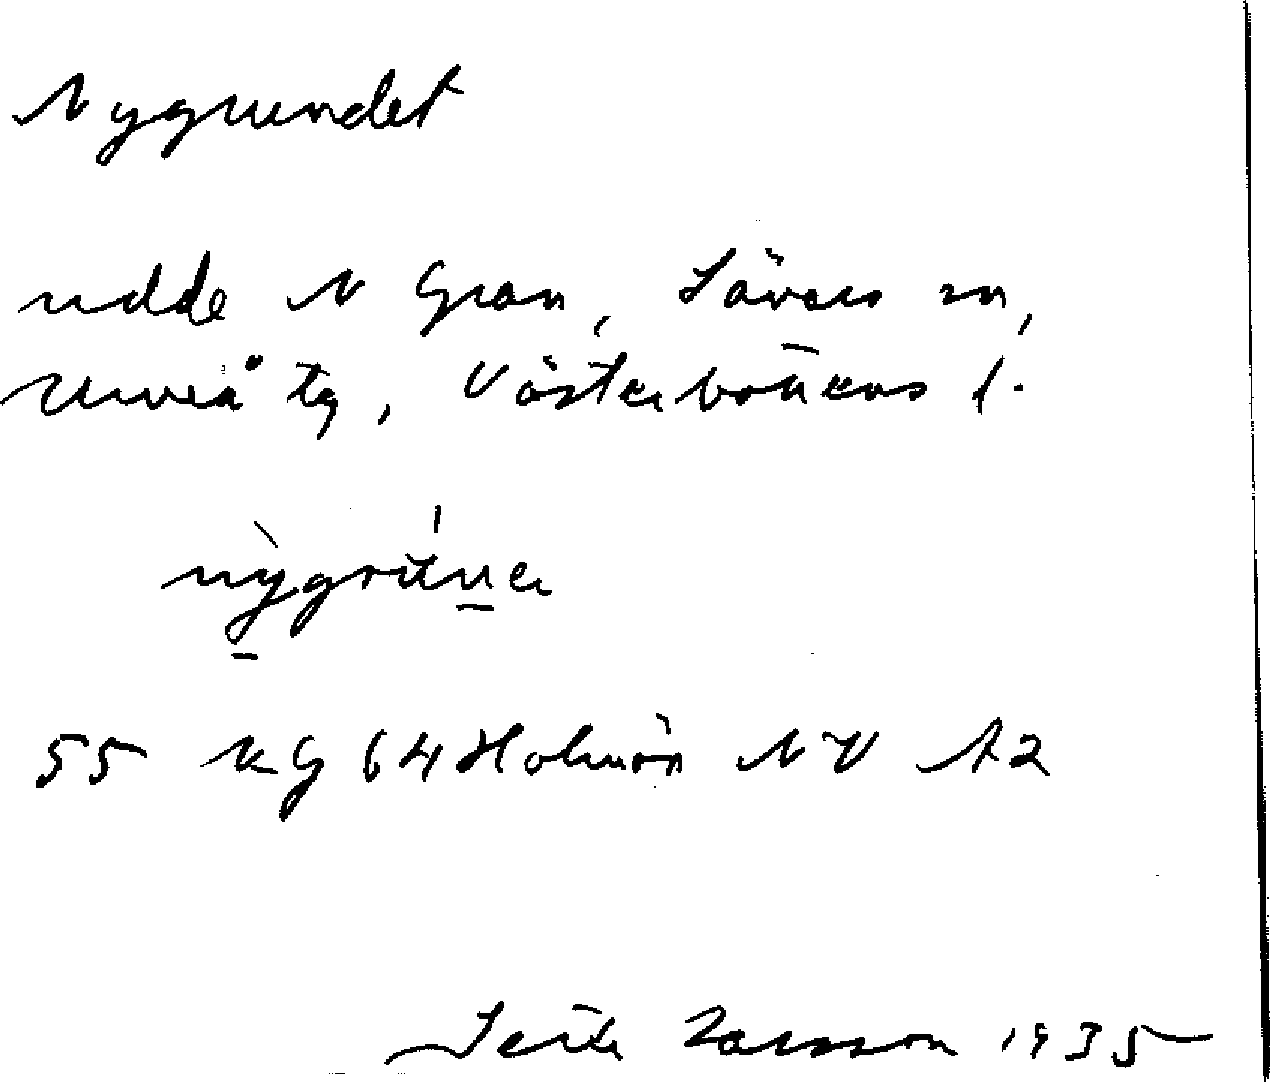 Nygrundet
udde N Gran, Sävars sn,
Umeå tg, Västerbottens l.
55 kg 64 Holmön NV A2
Seth Larsson 1935